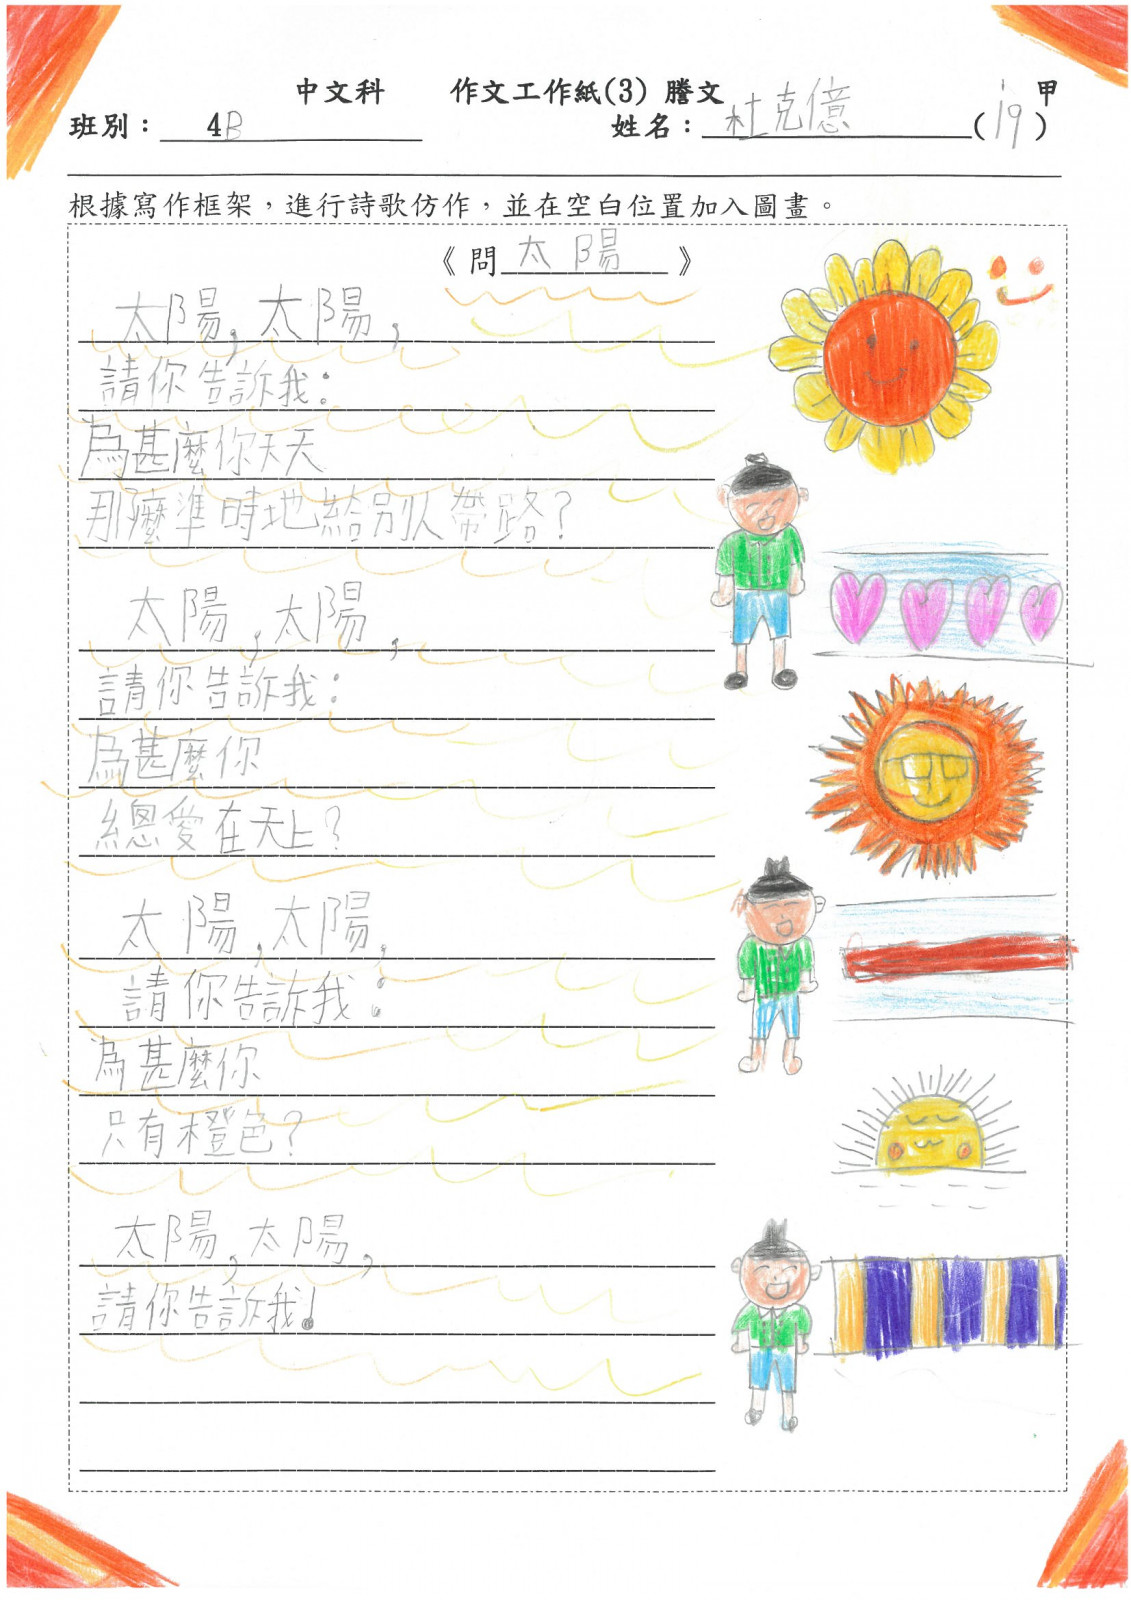 中文科 作文工作紙(3) 謄文 甲
班別：4B 姓名：杜克億(19)
根據寫作框架，進行詩歌仿作，並在空白位置加入圖畫。
《問太陽》
太陽，太陽，
請你告訴我：
為甚麼你天天
那麼準時地給別人帶路？
太陽，太陽，
請你告訴我：
為甚麼你
總愛在天上？
太陽，太陽，
請你告訴我：
為甚麼你
只有橙色？
太陽，太陽，
請你告訴我！